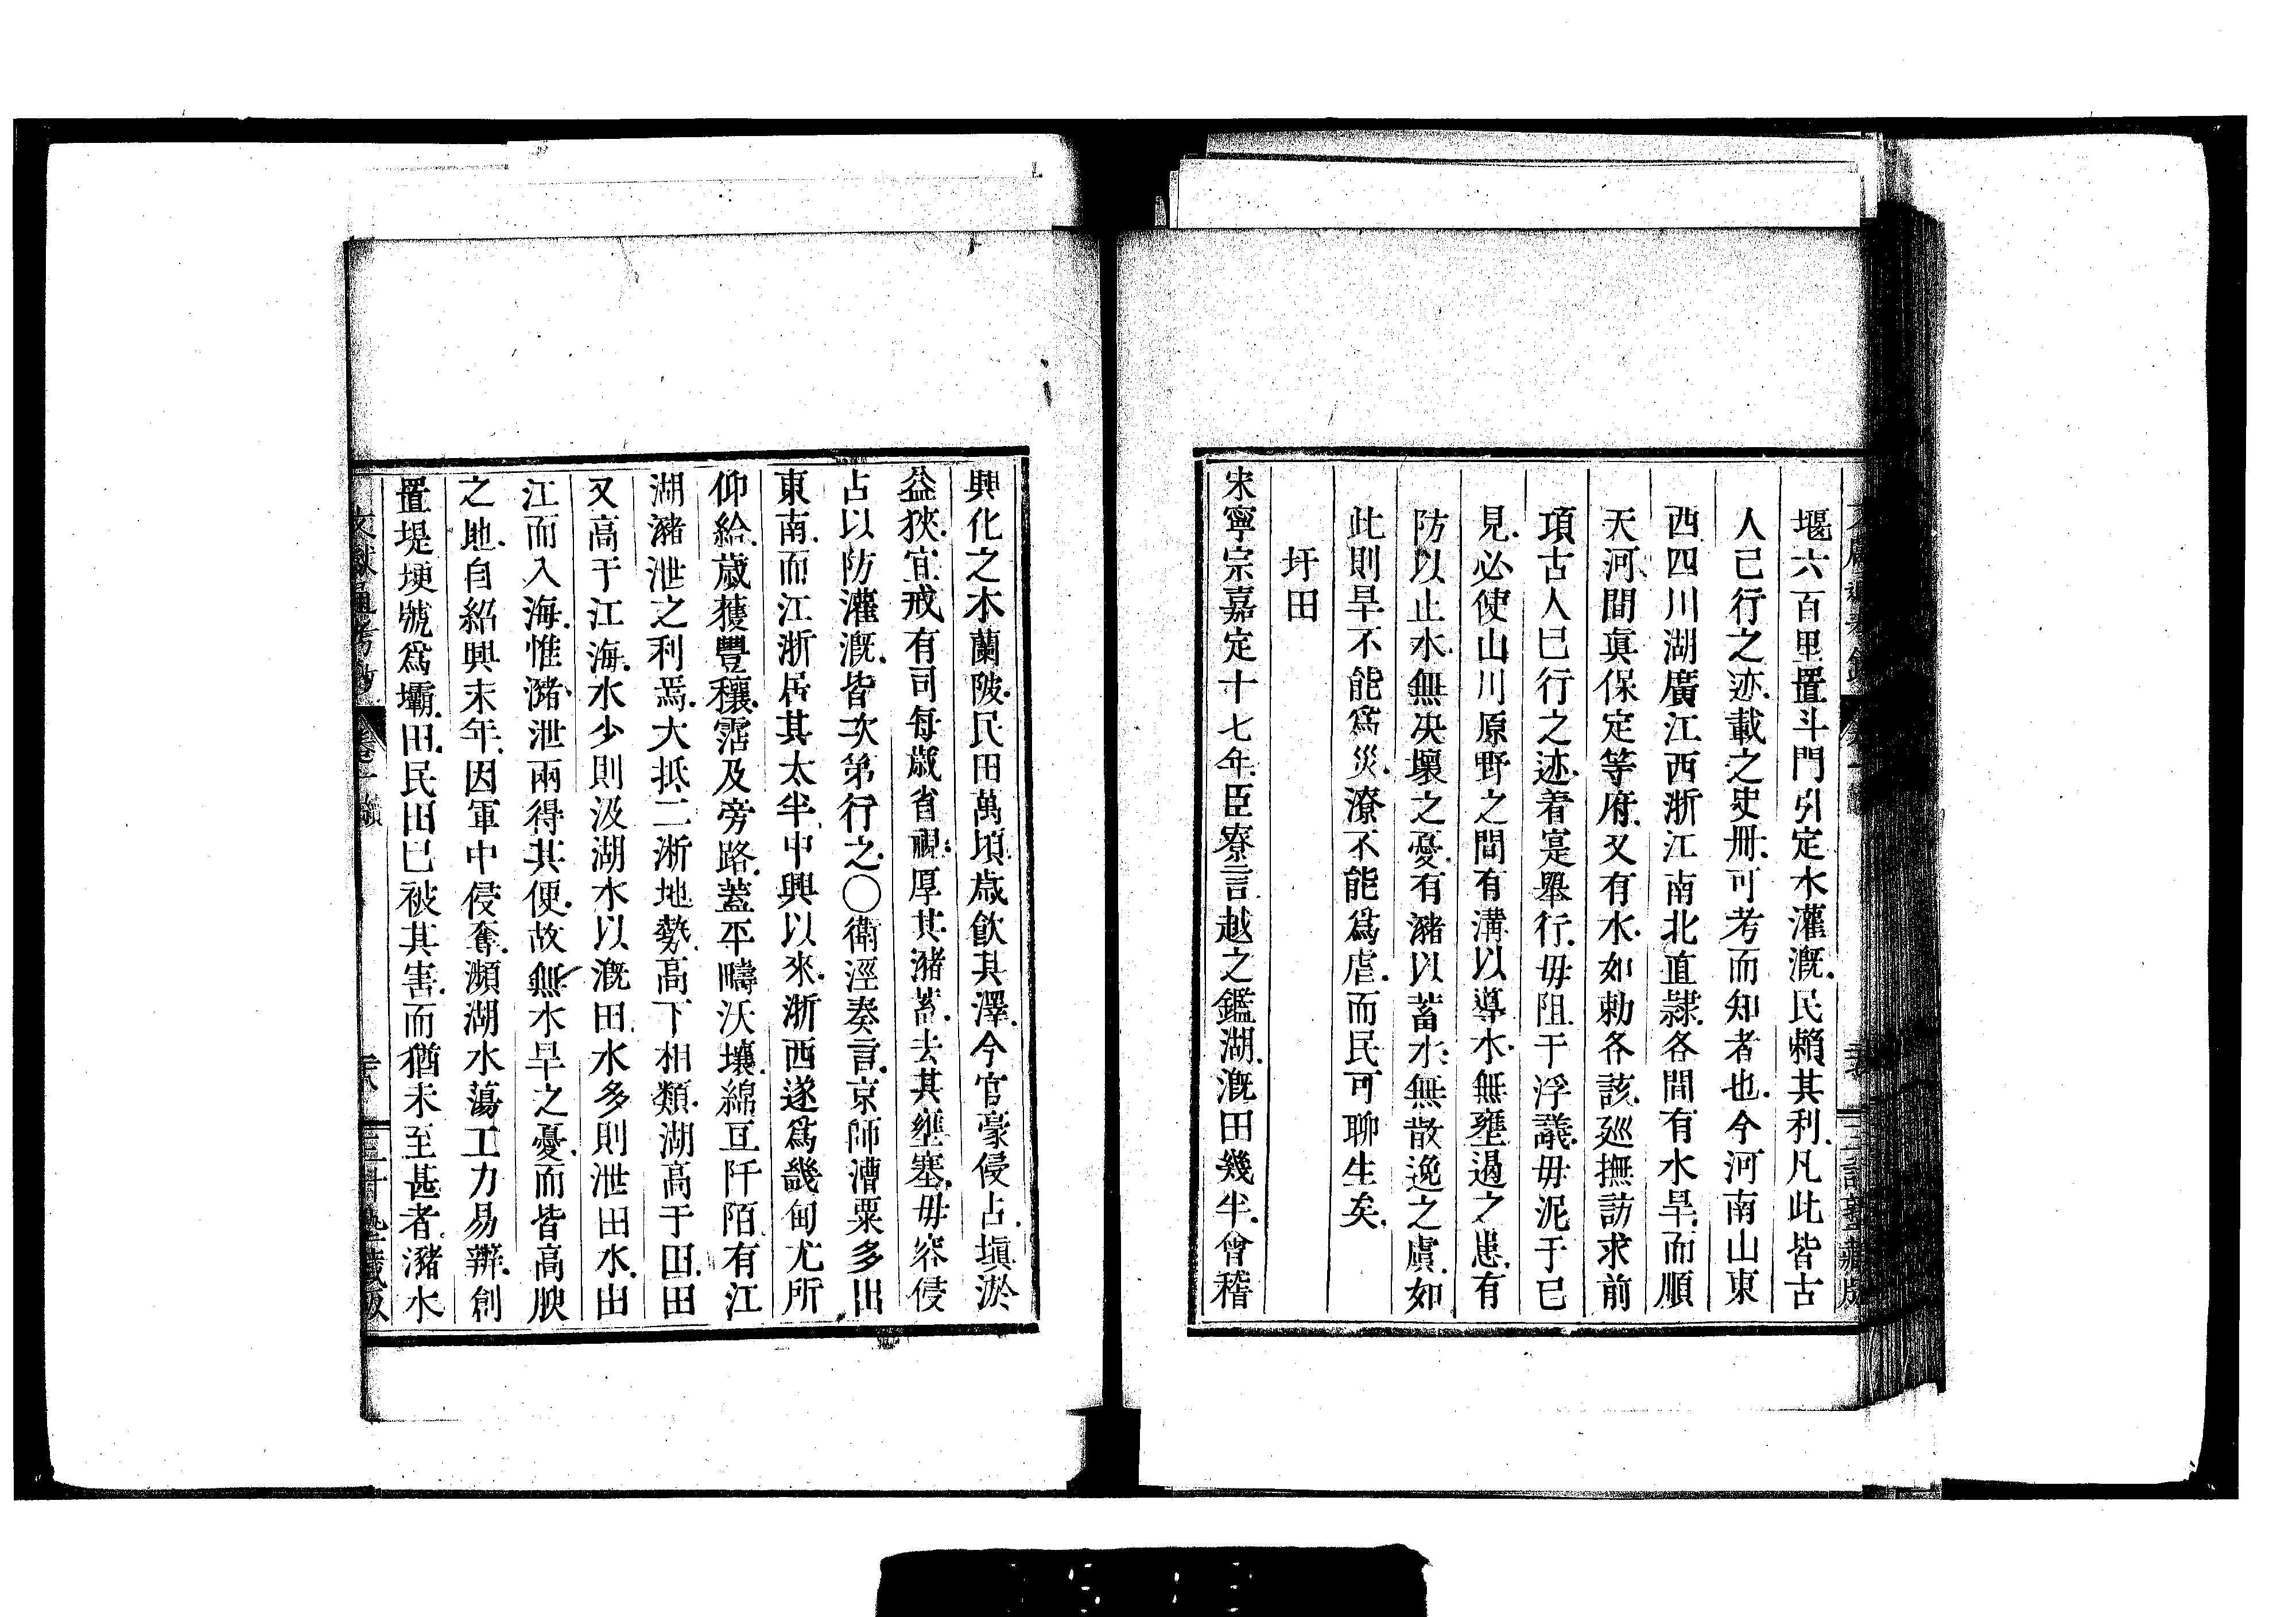 堰六百里置斗門引定水灌漑民賴其利凡此皆古
人已行之迹載之史册可考而知者也今河南山東
西四川湖廣江西浙江南北直隷各間有水旱而順
天河間眞保定等府又有水如勅各該廵撫訪求前
項古人已行之迹着寔舉行毋阻于浮議毋泥于已
見必使山川原野之間有溝以導水無壅遏之患有
防以止水無决壞之憂有瀦以蓄水無散逸之虞如
此則旱不能爲災潦不能爲虐而民可聊生矣
圩田
宋寧宗嘉定十七年臣寮言越之鑑湖漑田幾半會稽
興化之木蘭陂民田萬頃歳飲其澤今官豪侵占塡淤
益狹宜戒有司每歲省視厚其瀦蓄去其壅塞毋容侵
占以防灌漑皆次第行之○衛涇奏言京師漕粟多出
東南而江浙居其太半中興以來浙西遂爲畿甸尤所
仰給歲獲豐穰霑及旁路蓋平疇沃壤綿亙阡陌有江
湖瀦泄之利焉大抵二浙地勢高下相類湖高于田田
又高于江海水少則汲湖水以漑田水多則泄田水由
江而入海惟瀦泄兩得其便故無水旱之憂而皆高腴
之地自紹興末年因軍中侵奪瀕湖水蕩工力易辦創
置堤埂號爲壩田民田已被其害而猶未至甚者瀦水
文獻通考鈔 卷一